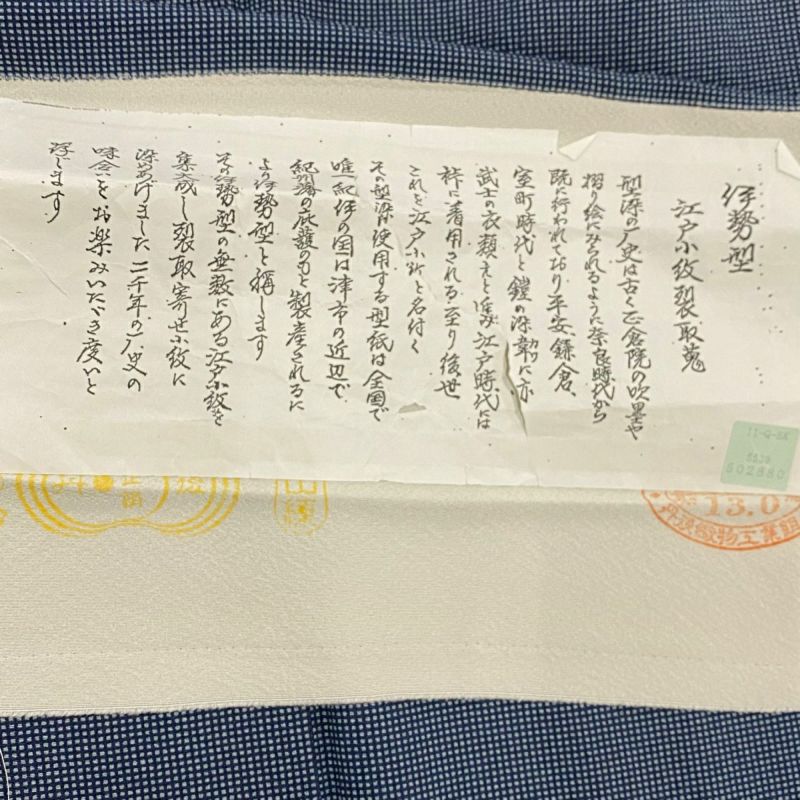 伊勢型
江戸小紋裂取蒐
型染の歴史は古く正倉院の吹墨や
摺り絵にみられるように奈良時代から
既に行われており平安、鎌倉、
室町時代と鎧の染韋に亦
カワ
武士の衣類えと進み江戸時代には
裃に着用される至り後世
これを江戸小紋と名付く
その型染使用する型紙は全国で
唯一紀伊の国は津市の近辺で
紀州藩の庇護のもと製産されるに
より伊勢型と稱します
その伊勢型の無数にある江戸小紋を
集成し裂取寄せ小紋に
染めあげました二千年の歴史の
味合いをお楽みいただき度いと
存じます
11-Q-SK
5539
502880
山緯
13.0
丹後織物工業組